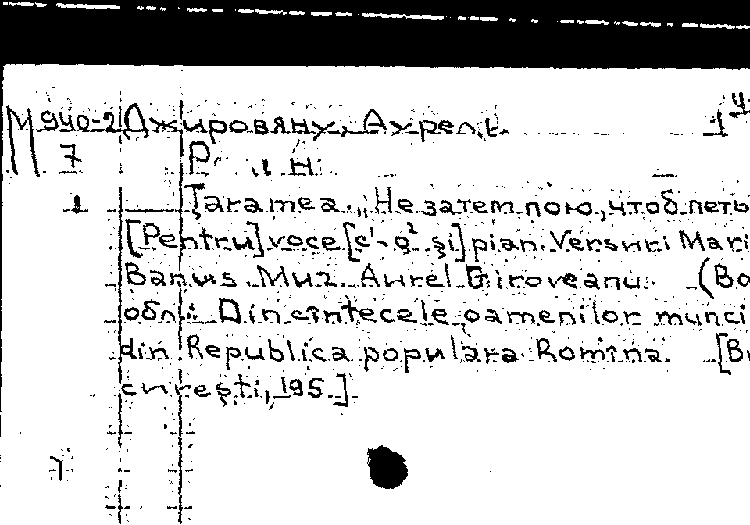 М 940-2 Джировяну, Аурел. 1 4
7 Р. и Н.
1 Ţara mea. „Не затем пою, чтоб петь
[Pentru] voce [c¹- g² şi] pian. Versuri Mari
Banus. Muz. Aurel Giroveanu. (Во
обл.: Din cîntecele oamenilor munci
din Republica populara Romîna. [Bu
cureşti, 195 ].